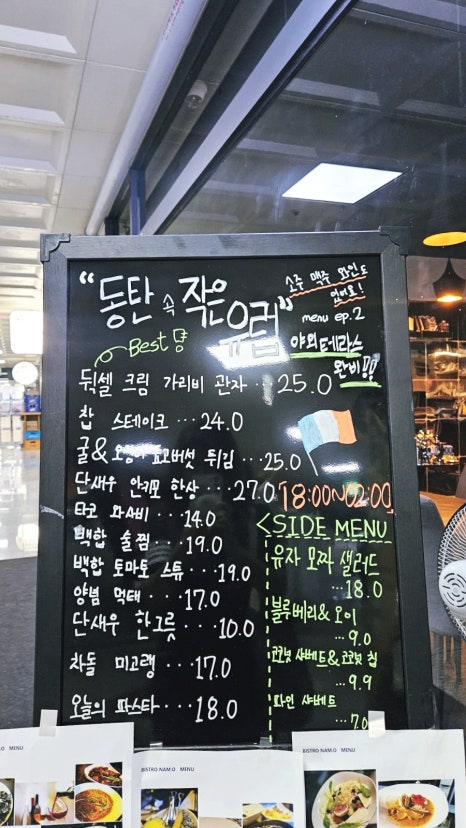 "동탄 속 작은 유럽"
소주 맥주 와인도
있어요!
menu ep.2
야외테라스
완비!!
Best
뒥셀 크림 가리비 관자 ··· 25.0
찹 스테이크 ··· 24.0
굴& 표고버섯 튀김 ··· 25.0
단새우 안키모 한상 ··· 27.0
18:00~02:00
타코 와사비 ··· 14.0
백합 술찜 ··· 19.0
백합 토마토 스튜 ··· 19.0
양념 먹태 ··· 17.0
단새우 한그릇 ··· 10.0
차돌 미고랭 ··· 17.0
오늘의 파스타 ··· 18.0
<SIDE MENU
유자 모짜 샐러드
··· 18.0
블루베리& 오이
··· 9.0
코코넛 샤베트&코코넛 칩
··· 9.9
와인 샤베트
··· 7.0
MENU
BISTRO NAM.O MENU
BISTRO NAM.O MENU